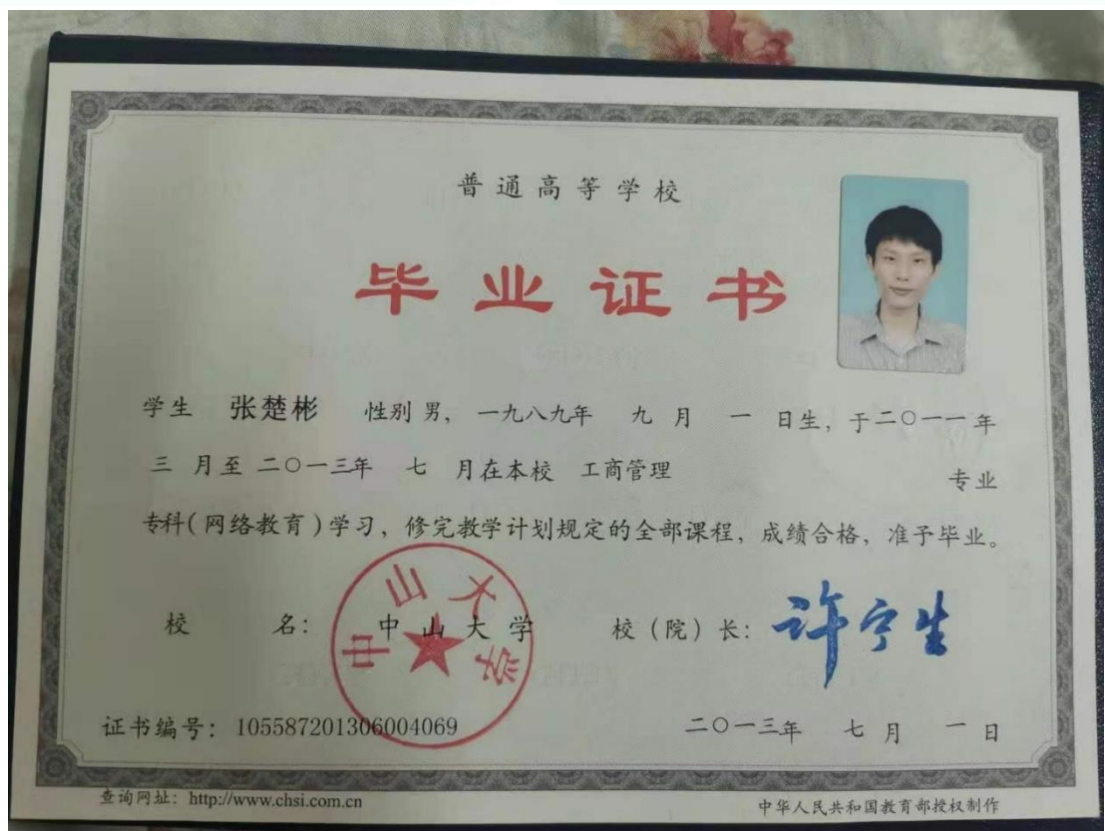 普通高等学校
毕业证书
学生 张楚彬 性别 男, 一九八九年 九 月 一 日生, 于二〇一一年
三 月至 二〇一三年 七 月在本校 工商管理 专业
专科(网络教育)学习, 修完教学计划规定的全部课程, 成绩合格, 准予毕业。
校 名: 中山大学 校(院)长: 许宁生
中山大学
证书编号: 105587201306004069 二〇一三年 七 月 一 日
查询网址: http://www.chsi.com.cn 中华人民共和国教育部授权制作